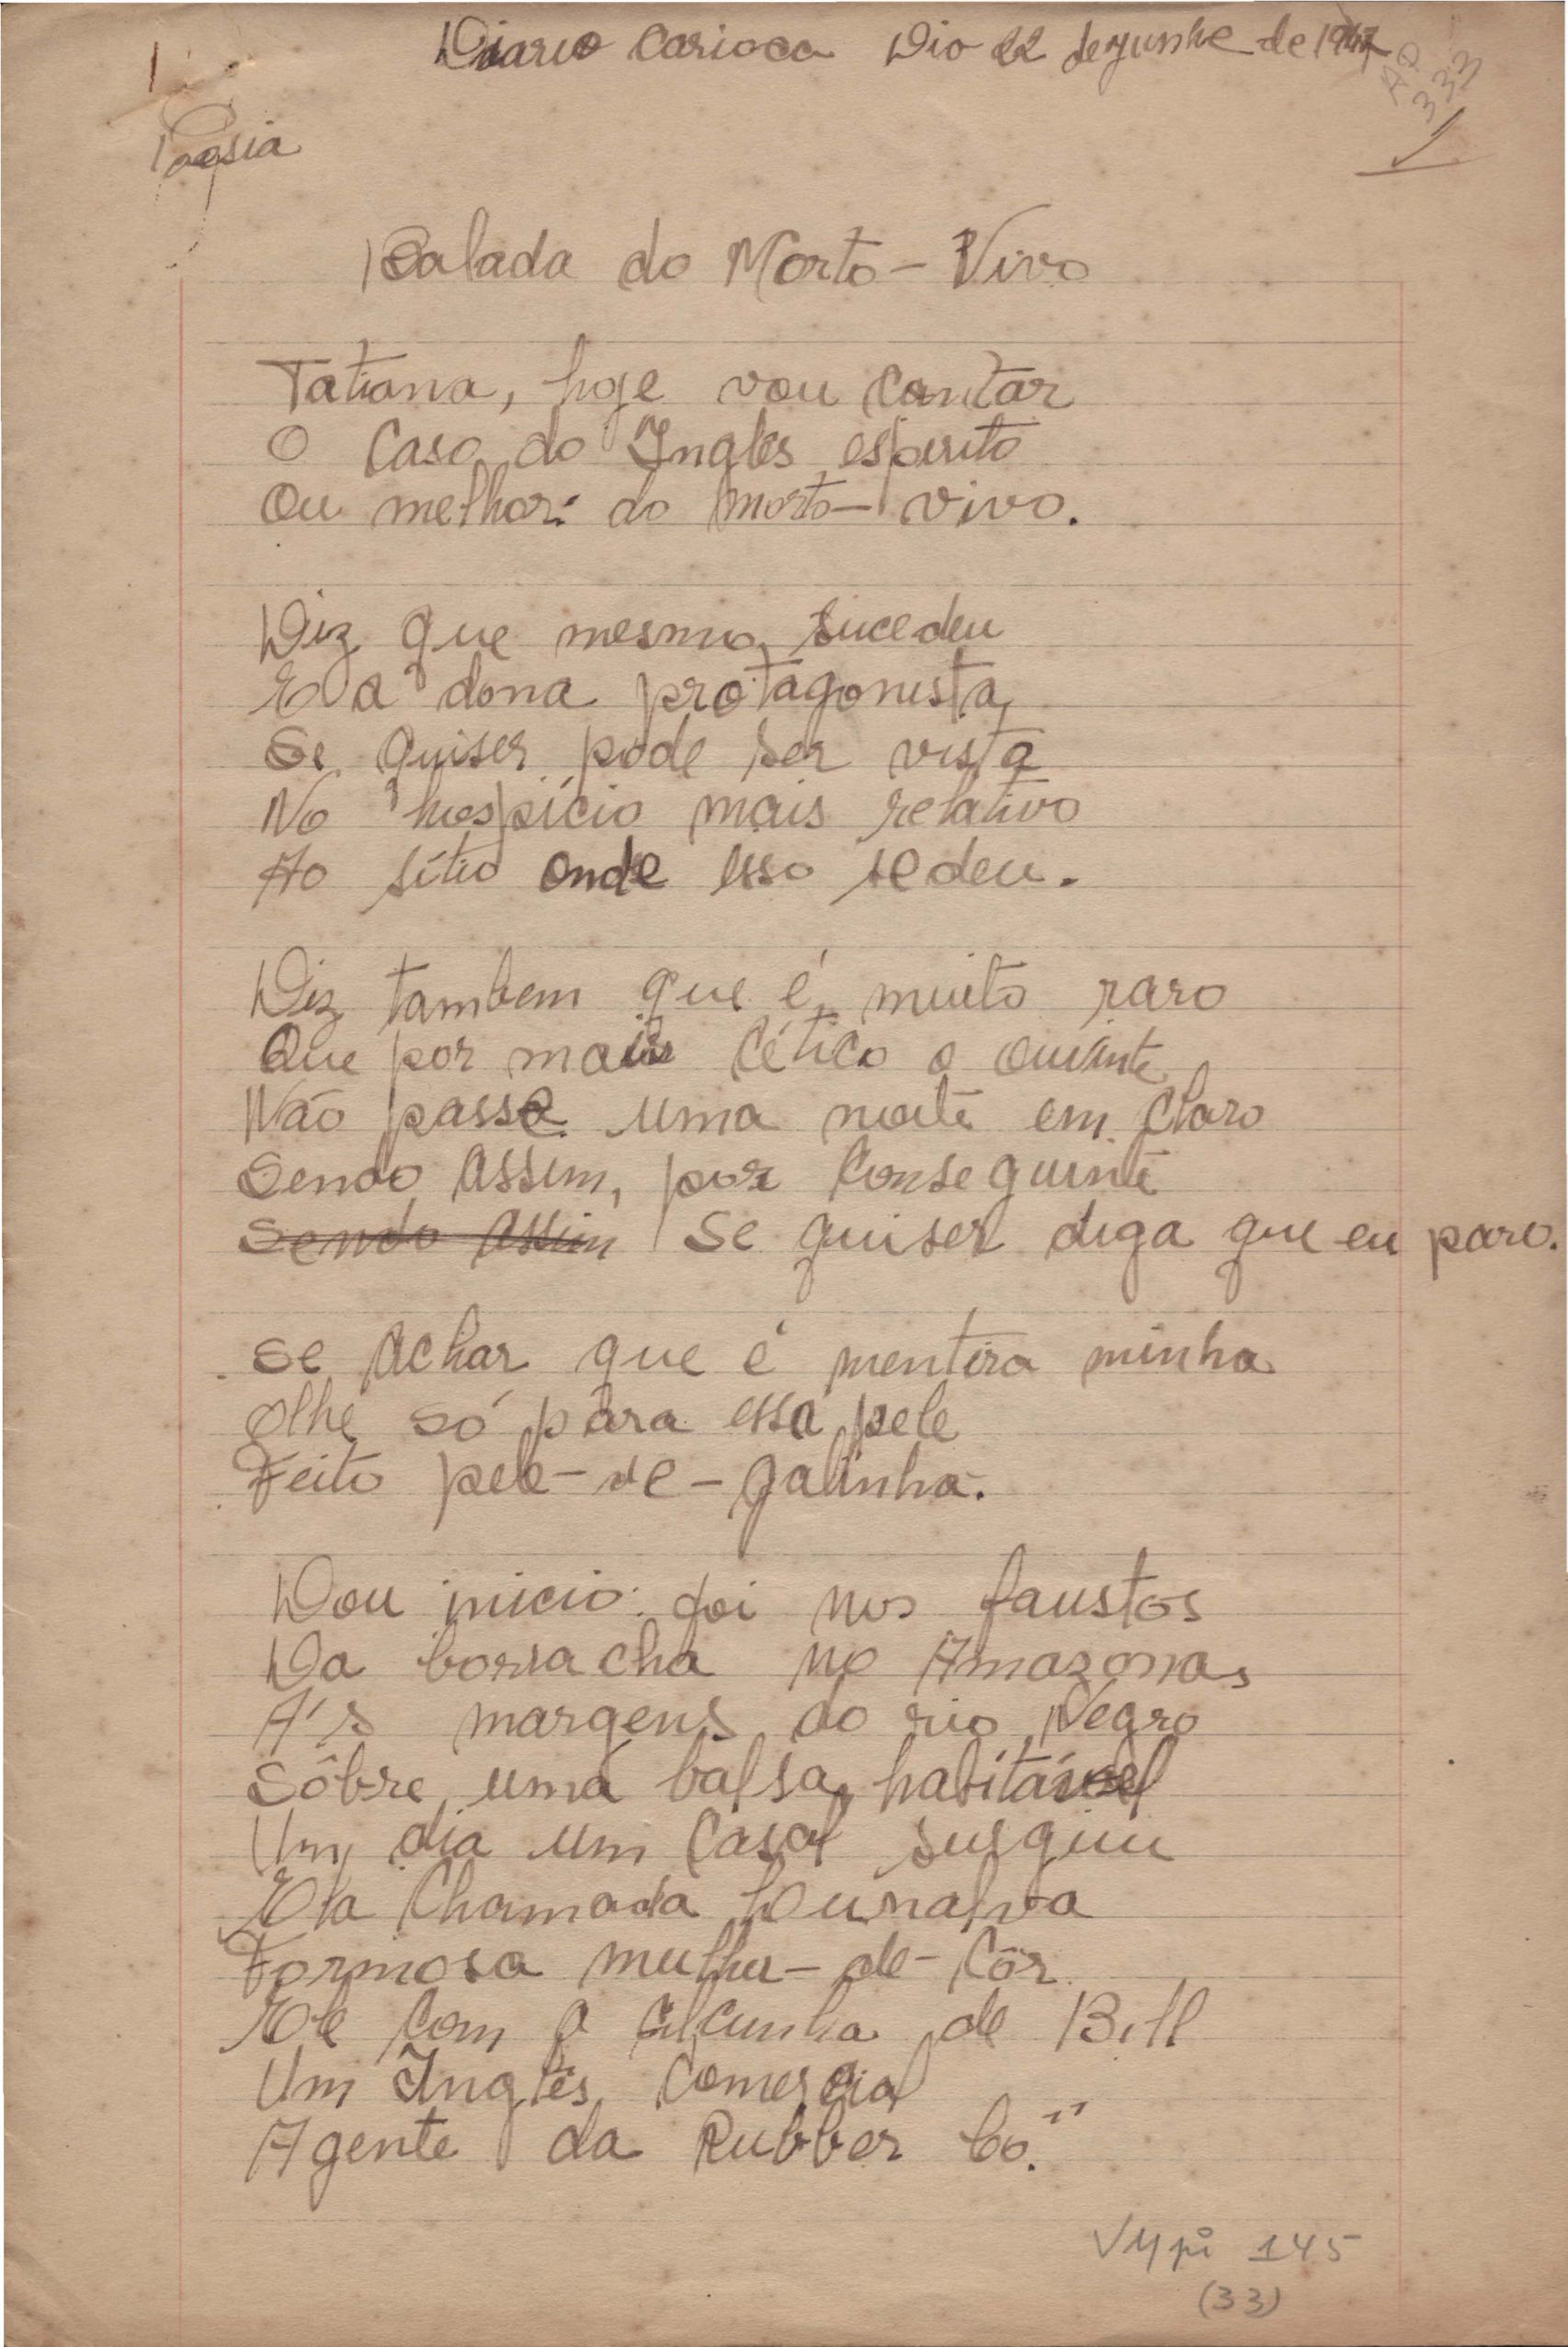 1
Diario Carioca Dio 22 de junho de 1947
333
Poesia
Balada do Morto-Vivo
Tatiana, hoje vou contar
O Caso do Inglês espirito
Ou melhor: do morto-vivo.
Diz que mesmo sucedeu
E a dona protagonista
Se quiser pode ser vista
No hospício mais relativo
Ao sítio onde isso se deu.
Diz tambem que é muito raro
Que por mais cético o ouvinte
Não passe uma noite em claro
Sendo assim, por conseguinte
Sendo assim Se quiser diga que eu paro.
Se achar que é mentira minha
Olhe só para essa pele
Feito pele-de-galinha.
Dou inicio: foi nos faustos
Da borracha no Amazonas
A's margens do rio Negro
Sôbre uma balsa habitável
Um dia um casal surgiu
Ela chamada Lunalva
Formosa mulher-de-côr
Ele com a alcunha de Bill
Um Inglês comercial
Agente da Rubber Co."
VMpi 145
(33)